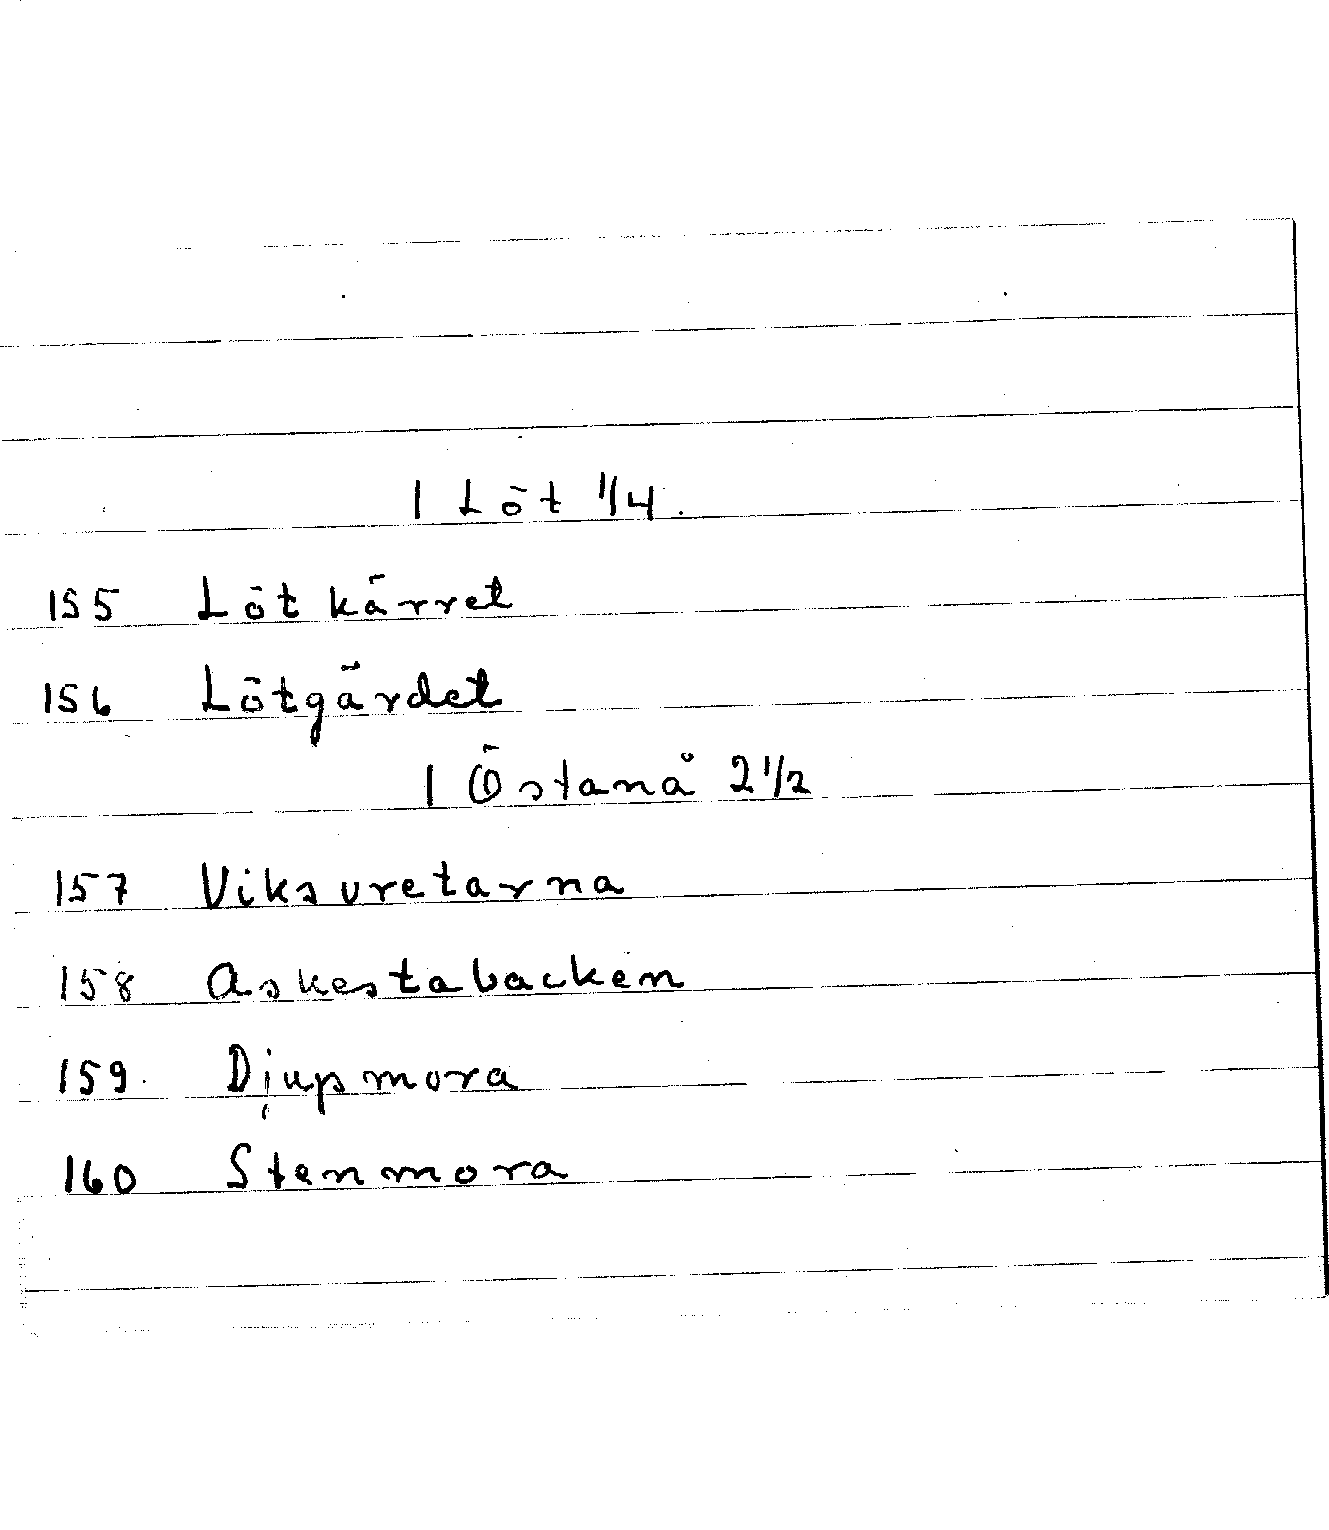 I Löt 1/4.
155 Lötkärret
156 Lötgärdet
I Östanå 2 1/2
157 Viksvretarna
158 Askestabacken
159. Djupmora
160 Stenmora